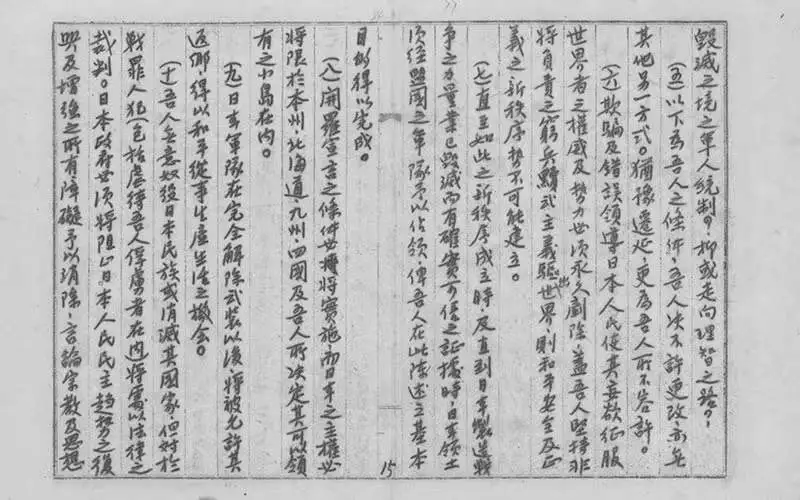 毀滅之境之軍人統制?抑或走向理智之路?
(五)以下為吾人之條件,吾人決不許更改,亦無
其他另一方式。猶豫遷延,更為吾人所不容許。
(六)欺騙及錯誤領導日本人民使其妄欲征服
世界者之權威及勢力必須永久剷除,蓋吾人堅持非
將負責之窮兵黷武主義驅出世界,則和平安全及正
義之新秩序勢不可能建立。
(七)直至如此之新秩序成立時,及直到日本製造戰
爭之力量業已毀滅而有確實可信之証據時,日本領土
須經盟國之軍隊予以佔領,俾吾人在此陳述之基本
目的得以完成。
(八)開羅宣言之條件必將實施,而日本之主權必
將限於本州,北海道,九州,四國及吾人所決定其可以領
有之小島在內。
(九)日本軍隊在完全解除武裝以後,將被允許其
返鄉,得以和平從事生產生活之機會。
(十)吾人無意奴役日本民族或消滅其國家,但對於
戰罪人犯(包括虐待吾人俘虜者在內)將處以法律之
裁判。日本政府必須將阻止日本人民民主趨勢之復
興及增強之所有障礙予以消除,言論宗教及思想
15